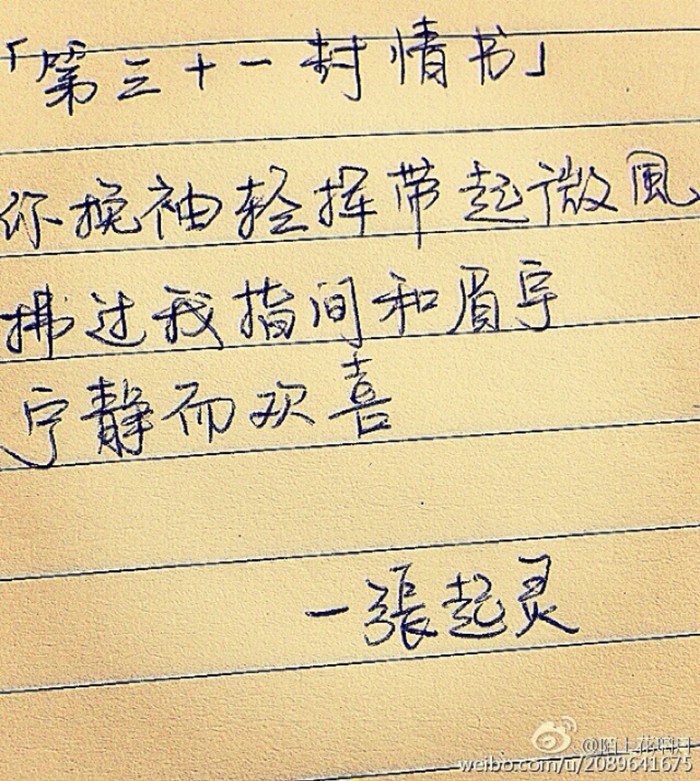 「第三十一封情书」
你挽袖轻挥带起微風
拂过我指间和眉宇
宁静而欢喜
—張起灵
@陌上花開月
weibo.com/u/2089641675